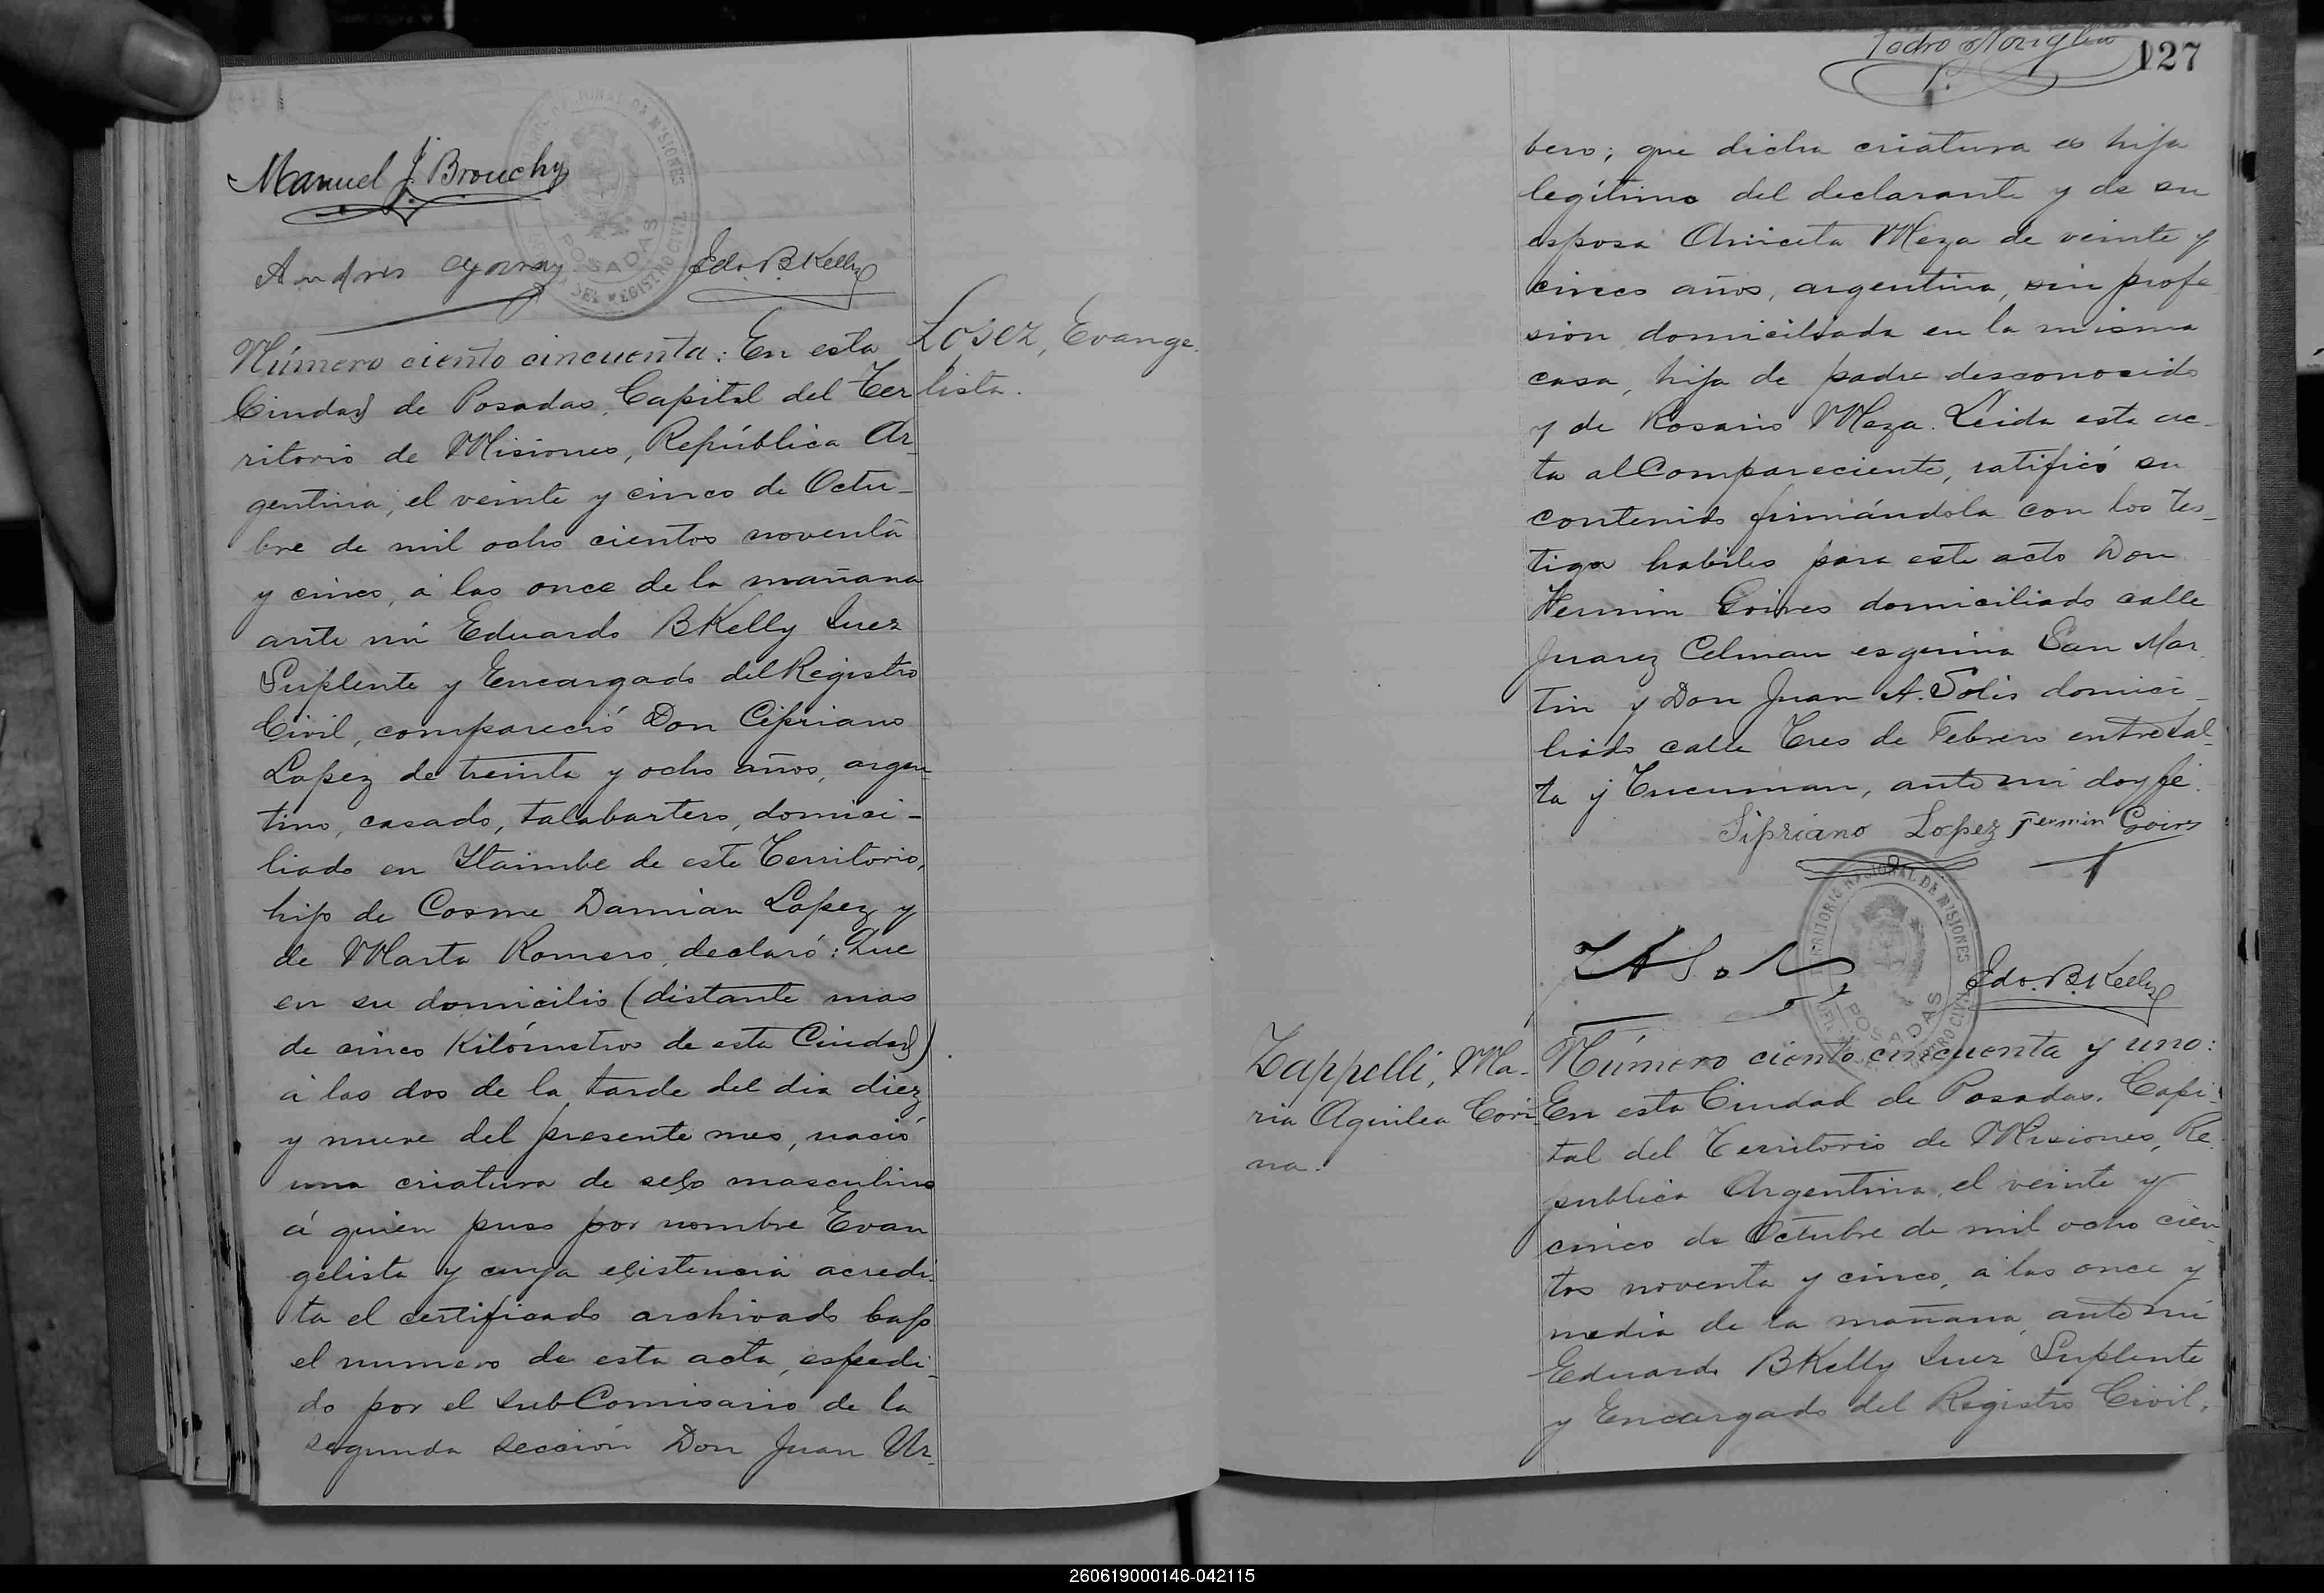 Manuel J. Brouchy
Andres Edo. B. Kelly
TERRITORIO NACIONAL DE MISIONES
POSADAS
DEL REGISTRO CIVIL
Número ciento cincuenta: En esta
Ciudad de Posadas, Capital del Ter
ritorio de Misiones, República Ar_
gentina, el veinte y cinco de Octu_
bre de mil ocho cientos noventa
y cinco, á las once de la mañana
ante mi Eduardo BKelly Juez
Suplente y Encargado del Registro
Civil, compareció Don Cipriano
Lopez de treinta y ocho años, argen_
tino, casado, talabartero, domici_
liado en Itaimbe de este Territorio,
hijo de Cosme Damian Lopez y
de Marta Romero, declaró: Que
en su domicilio (distante mas
de cinco Kilómetros de esta Ciudad)
á las dos de la tarde del dia diez
y nueve del presente mes, nació
una criatura de sexo masculino
á quien puso por nombre Evan
gelista y cuya existencia acredi_
ta el certificado archivado bajo
el numero de esta acta, espedi_
do por el subComisario de la
segunda sección Don Juan Ur_
Lopez, Evange_
lista.
Pedro
127
bero; que dicha criatura es hijo
legítimo del declarante y de su
esposa Aniceta Meza de veinte y
cinco años, argentina, sin profe
sion domiciliada en la misma
casa, hija de padre desconocido
y de Rosario Meza. Leida esta ac_
ta al Compareciente, ratificó su
contenido firmándola con los tes_
tigos habiles para este acto Don
Fermin Goires domiciliado calle
Juarez Celman esquina San Mar
tin y Don Juan A. Solis domici_
liado calle Tres de Febrero entre Sal_
ta y Tucuman, ante mi doy fé.
Sipriano Lopez Fermin Goires
Edo. B. Kelly
TERRITORIO NACIONAL DE MISIONES
POSADAS
REGISTRO CIVIL
Zappelli, Ma_
ria Aquilea Cori_
na.
Número ciento cincuenta y uno:
En esta Ciudad de Posadas, Capi_
tal del Territorio de Misiones, Re_
publica Argentina, el veinte y
cinco de Octubre de mil ocho cien_
tos noventa y cinco, á las once y
media de la mañana, ante mi
Eduardo BKelly Juez Suplente
y Encargado del Registro Civil,
260619000146-042115